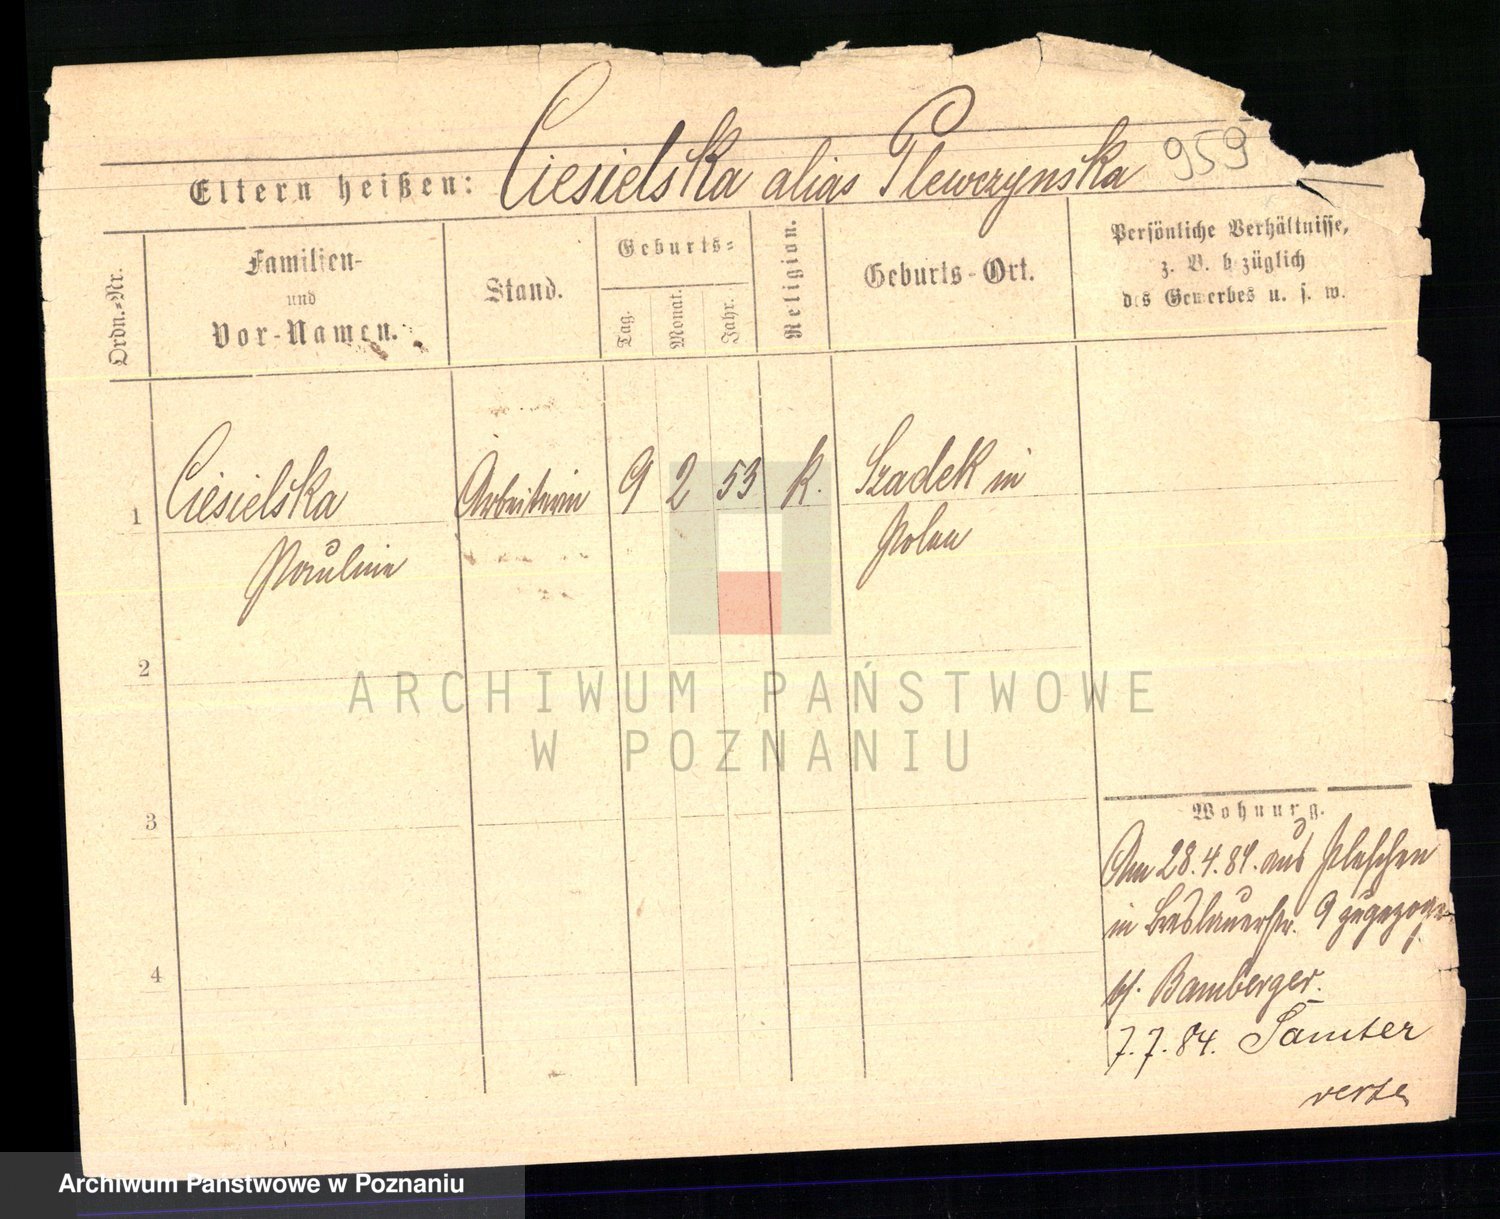 959
Eltern heißen: Ciesielska alias Plewczynska
Ordn.-Nr.
Familien-
und
Vor-Namen.
Stand.
Geburts-
Tag.
Monat.
Jahr.
Religion.
Geburts-Ort.
Persönliche Verhältnisse,
z. B. bezüglich
des Gewerbes u. s. w.
1 Ciesielska Arbeiterin 9 2 53 k. Szadek in
Pauline Polen
2
3
4
Wohnung.
Am 28.4.84. aus Pleschen
in Breslauerstr. 9 zugezogen
bei Bamberger.
7.7.84. Samter
verte
ARCHIWUM PAŃSTWOWE
W POZNANIU
Archiwum Państwowe w Poznaniu